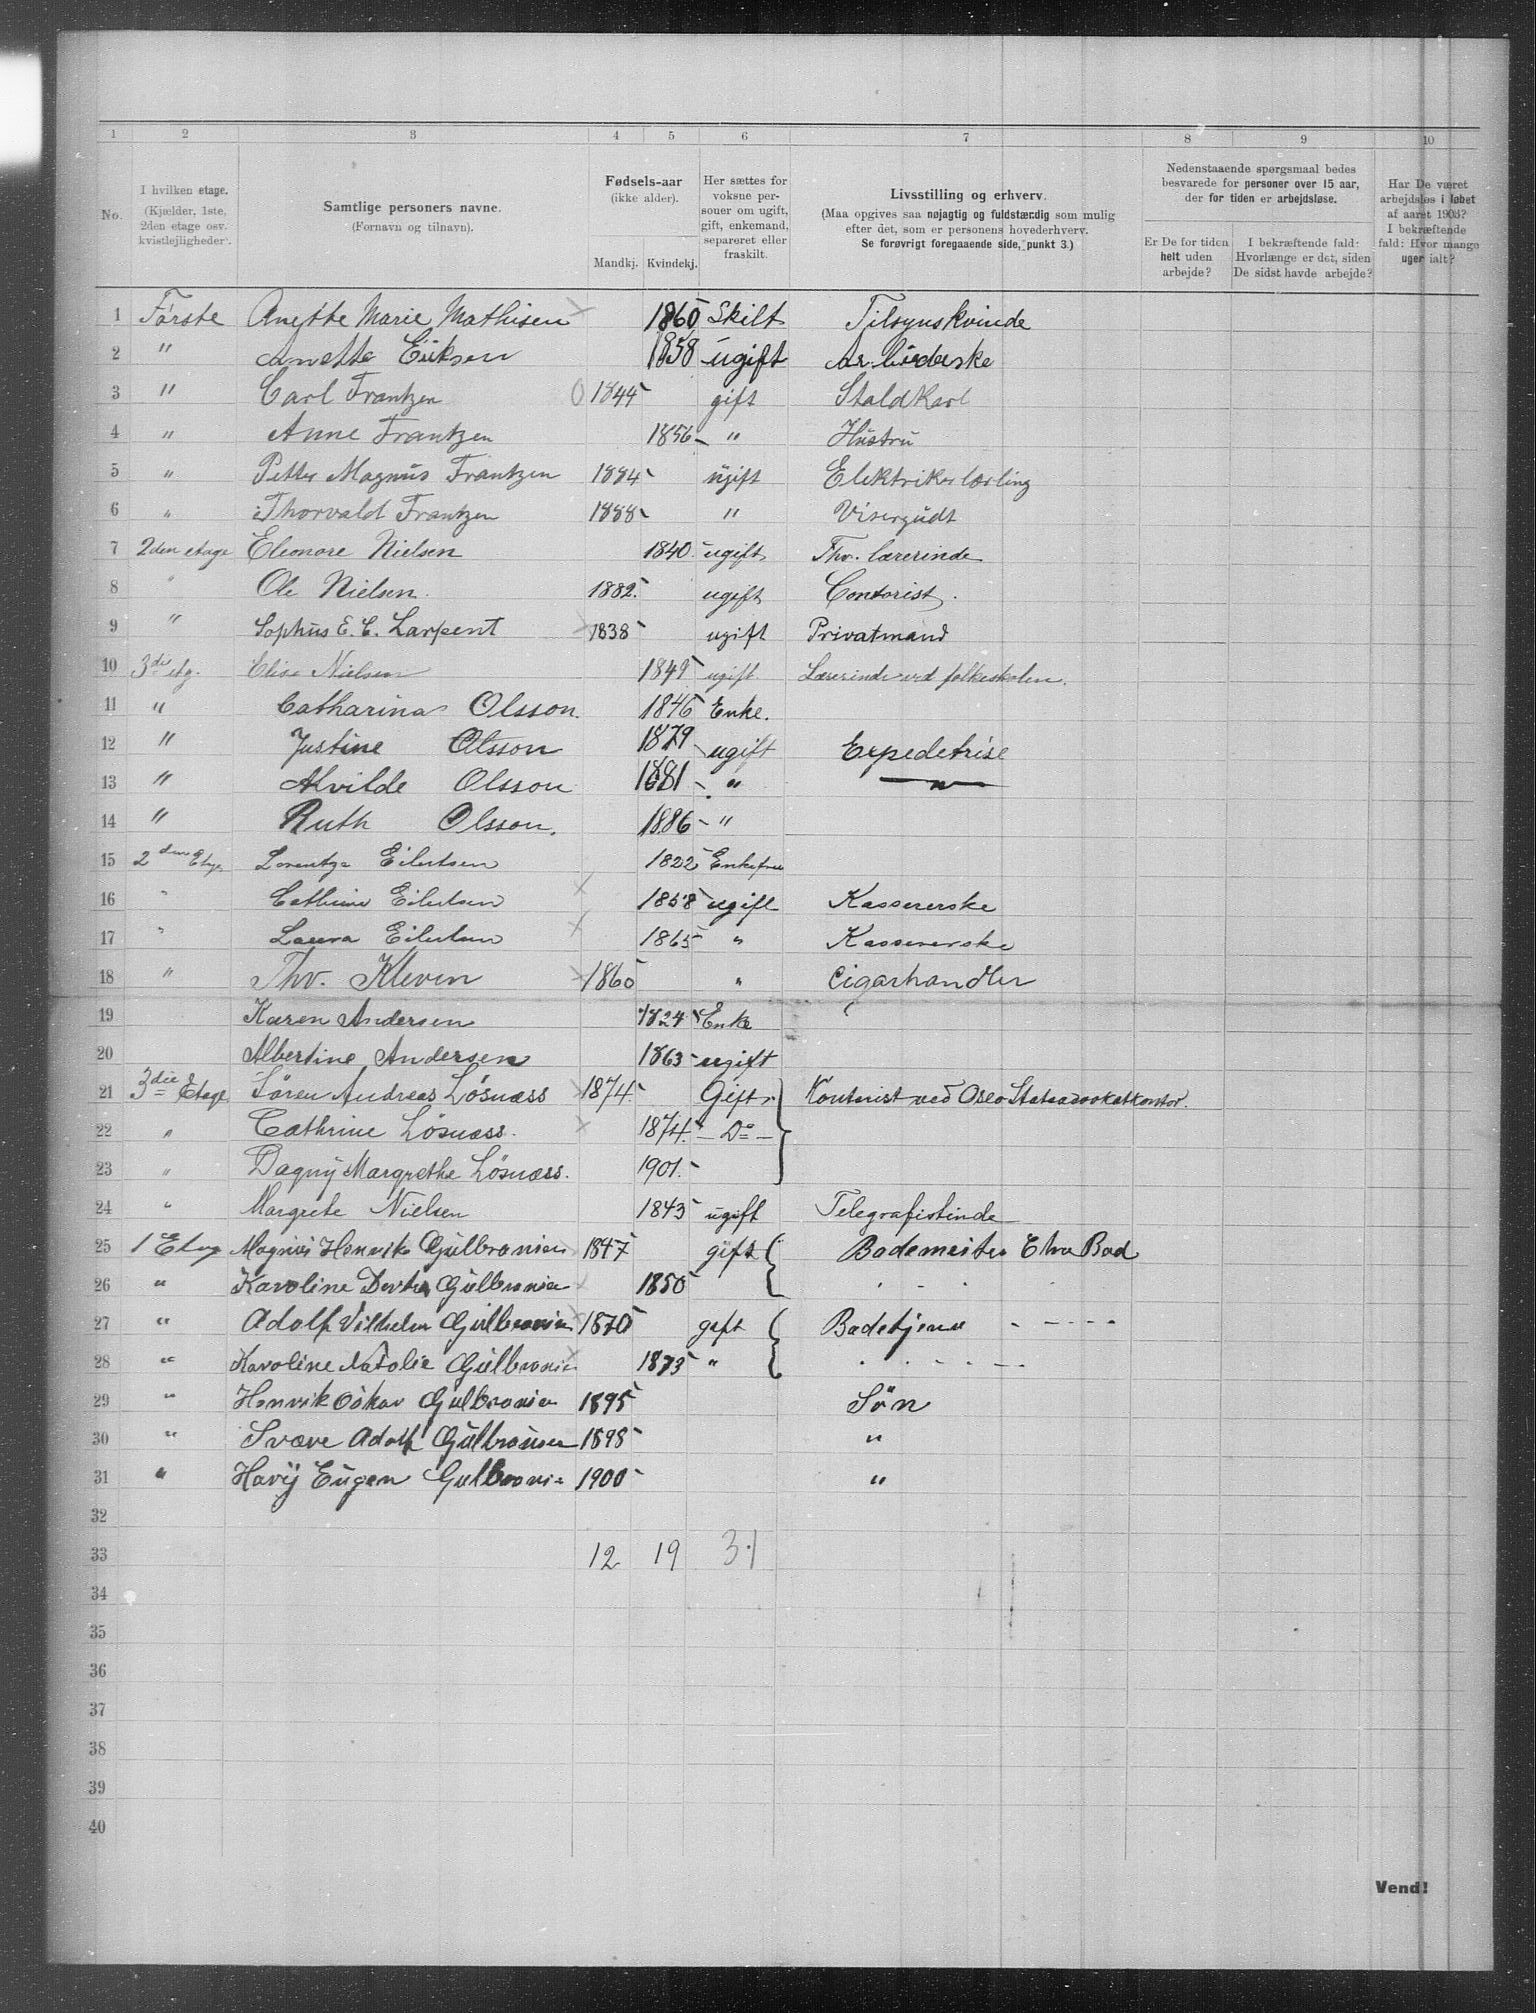 1 2 3 4 5 6 7 8 9 10
No. I hvilken etage. (Kjælder, 1ste, 2den etage osv. kvistlejligheder). Samtlige personers navne. (Fornavn og tilnavn). Fødsels-aar (ikke alder). Mandkj. Kvindekj. Her sættes for voksne personer om ugift, gift, enkemand, separeret eller fraskilt. Livsstilling og erhverv. (Maa opgives saa nøjagtig og fuldstændig som mulig efter det, som er personens hovederhverv. Se forøvrigt foregaaende side, punkt 3.) Nedenstaaende spørgsmaal bedes besvarede for personer over 15 aar, der for tiden er arbejdsløse. Er De for tiden helt uden arbejde? I bekræftende fald: Hvorlænge er det, siden De sidst havde arbejde? Har De været arbejdsløs i løbet af aaret 1903? I bekræftende fald: Hvor mange uger ialt?
1 Første Anette Marie Mathisen 1860 Skilt Tilsynskvinde
2 " Anette Eriksen 1858 ugift Arbeiderske
3 " Carl Frantzen 0 1844 gift Staldkarl
4 " Anne Frantzen 1856 " Hustru
5 " Petter Magnus Frantzen 1884 ugift Elektrikerlærling
6 " Thorvald Frantzen 1888 " Visergudt
7 2den etage Eleonore Nielsen 1840 ugift Fhv. lærerinde
8 " Ole Nielsen 1882 ugift Contorist.
9 " Sophus E. C. Larpent 1838 ugift Privatmand
10 3die etg. Elise Nielsen 1849 ugift Lærerinde ved folkeskolen.
11 " Catharina Olsson. 1846 Enke.
12 " Justine Olsson 1879 ugift Expedetrise
13 " Alvilde Olsson 1881 " "
14 " Ruth Olsson. 1886 "
15 2den Etage Lorentze Eilertsen 1822 Enkefrue
16 " Cathrine Eilertsen 1858 ugift Kassererske
17 " Laura Eilertsen 1865 " Kassererske
18 " Thv. Kleven 1860 " Cigarhandler
19 Karen Andersen 1824 Enke
20 Albertine Andersen 1863 ugift
21 3die Etage Søren Andreas Løsnæss 1874. Gift Kontorist ved Oslo Statsadvokatkontor.
22 " Cathrine Løsnæss. 1874. Do
23 " Dagny Margrethe Løsnæss. 1901.
24 " Margrete Nielsen 1843 ugift Telegrafistinde
25 1 Etage Magnus Henrik Gulbransen 1847 gift Bademester Elvebad
26 " Karoline Gulbransen 1850
27 " Adolf Vilhelm Gulbransen 1870 gift Badetjener
28 " Karoline Natalie Gulbransen 1873 "
29 " Henrik Oskar Gulbransen 1895 Søn
30 " Svære Adolf Gulbransen 1898 "
31 " Harry Eugen Gulbransen 1900 "
32
33 12 19 31
34
35
36
37
38
39
40
Vend!